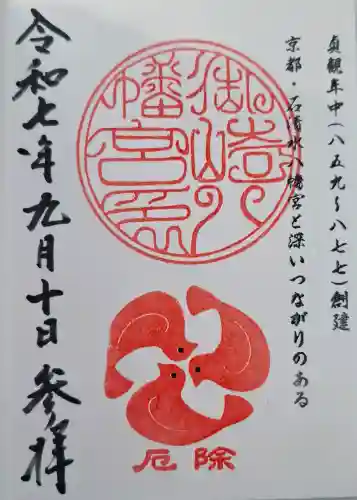 貞観年中(八五九~八七七)創建
京都・石清水八幡宮と深いつながりのある
御崎八幡宮
厄除
令和七年九月十日 参拝